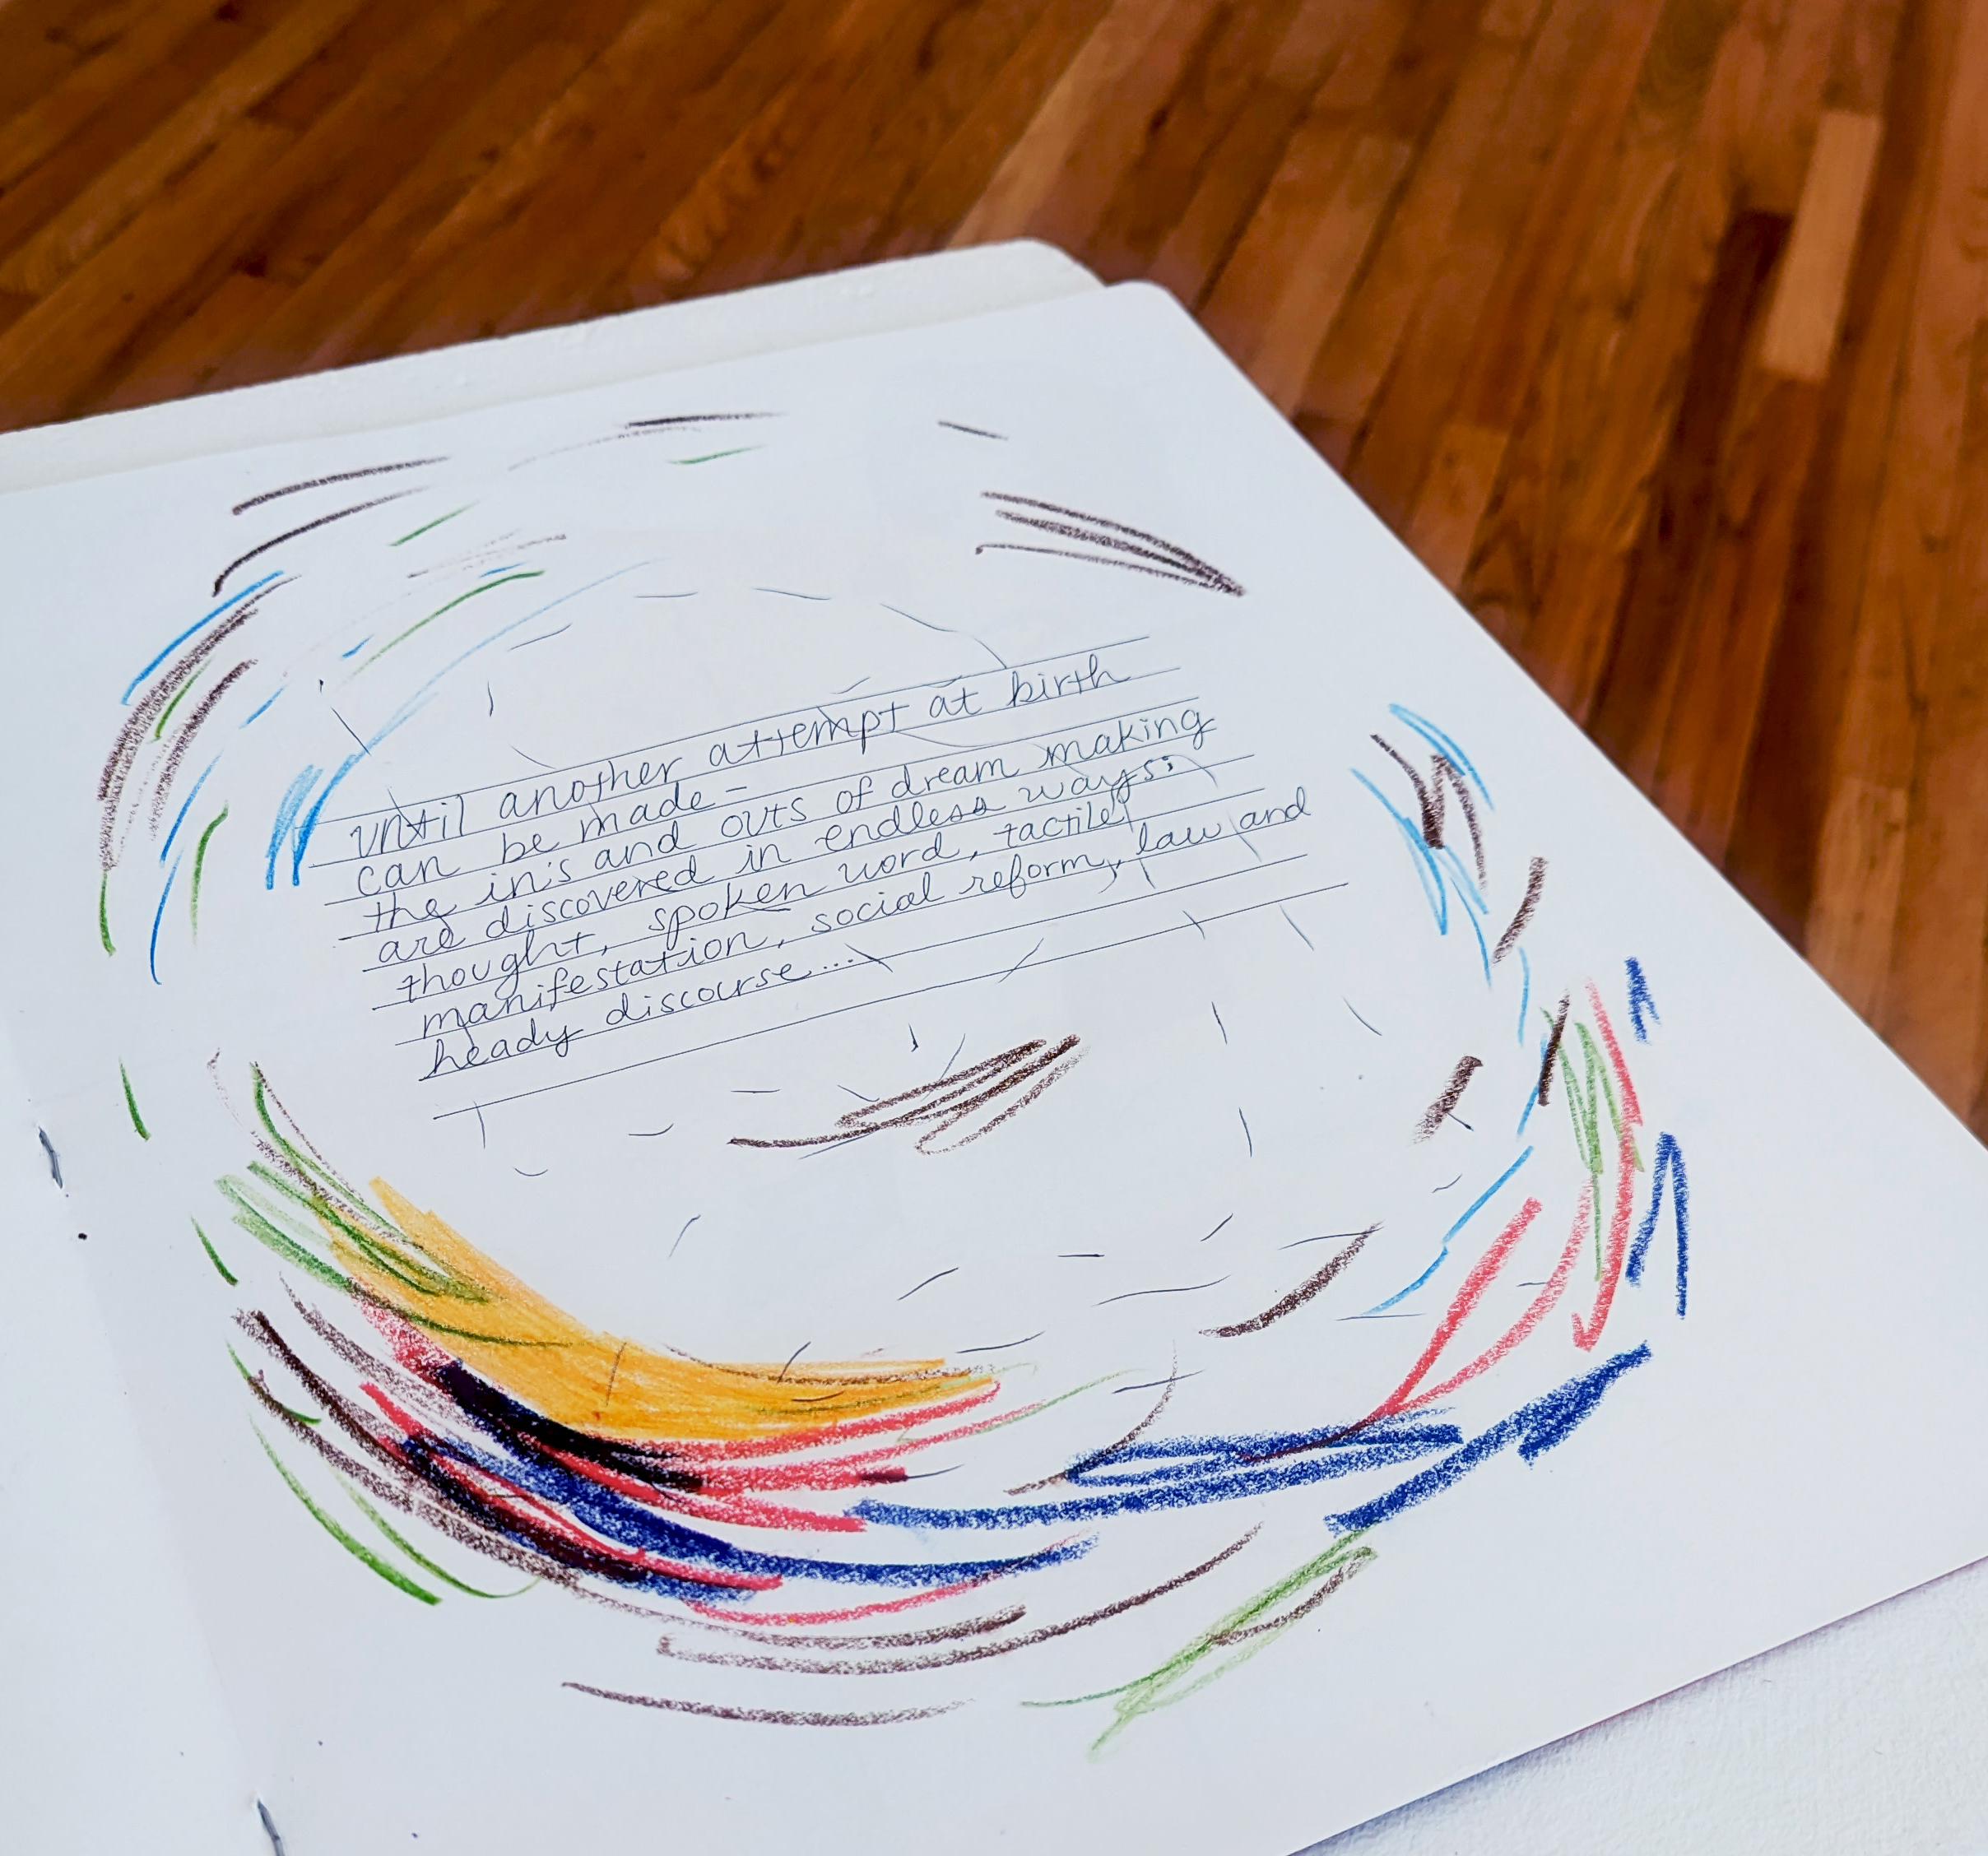 until another attempt at birth
can be made-
the in's and outs of dream making
are discovered in endless ways;
thought, spoken word, tactile
manifestation, social reform, law and
heady discourse...